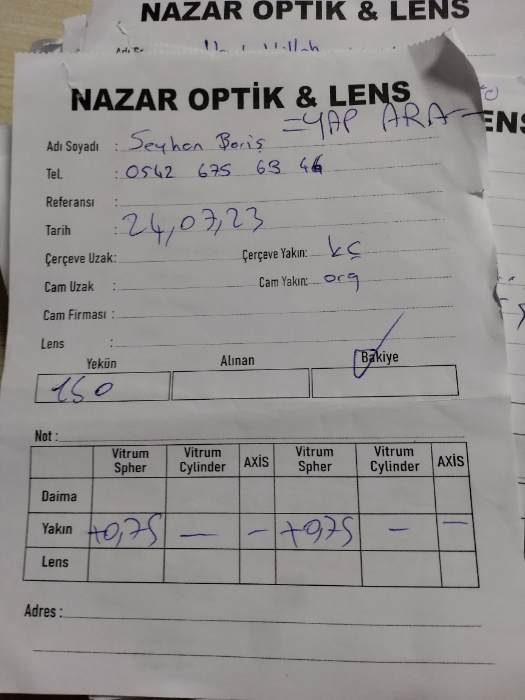 NAZAR OPTİK & LENS
NAZAR OPTİK & LENS
=YAP ARA
Adı Soyadı : Seyhan Bariş
Tel. : 0542 675 63 46
Referansı :
Tarih : 24,07,23
Çerçeve Uzak: Çerçeve Yakın: kç
Cam Uzak : Cam Yakın: org
Cam Firması :
Lens :
Yekün Alınan Bakiye
150
Not :
Vitrum Spher Vitrum Cylinder AXİS Vitrum Spher Vitrum Cylinder AXİS
Daima
Yakın +0,75 — — +0,75 — —
Lens
Adres :